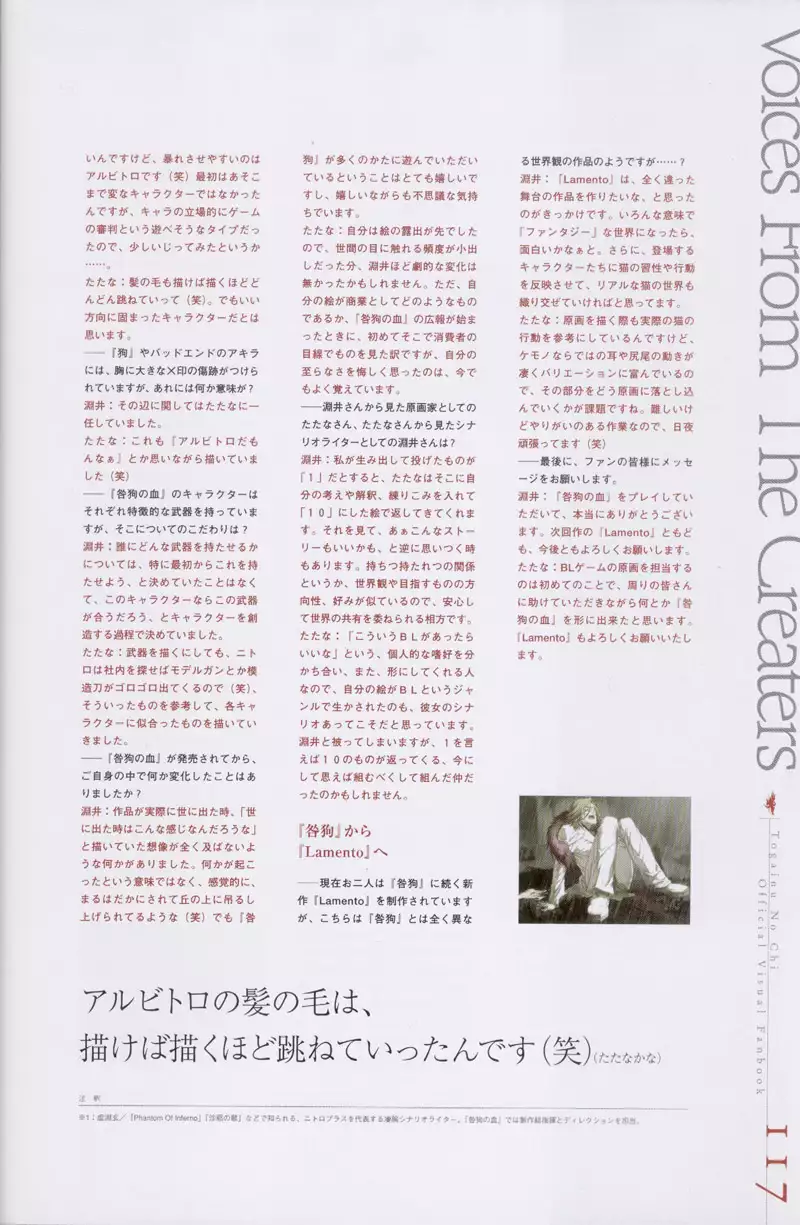 いんですけど、暴れさせやすいのは
アルビトロです（笑）最初はあそこ
まで変なキャラクターではなかった
んですが、キャラの立場的にゲーム
の審判という遊べそうなタイプだっ
たので、少しいじってみたというか
……。
たたな：髪の毛も描けば描くほどど
んどん跳ねていって（笑）。でもいい
方向に固まったキャラクターだとは
思います。
――『狗』やバッドエンドのアキラ
には、胸に大きな×印の傷跡がつけら
れていますが、あれには何か意味が？
淵井：その辺に関してはたたなに一
任していました。
たたな：これも『アルビトロだも
んなぁ』とか思いながら描いていま
した（笑）
――『咎狗の血』のキャラクターは
それぞれ特徴的な武器を持っていま
すが、そこについてのこだわりは？
淵井：誰にどんな武器を持たせるか
については、特に最初からこれを持
たせよう、と決めていたことはなく
て、このキャラクターならこの武器
が合うだろう、とキャラクターを創
造する過程で決めていました。
たたな：武器を描くにしても、ニト
ロは社内を探せばモデルガンとか模
造刀がゴロゴロ出てくるので（笑）、
そういったものを参考して、各キャ
ラクターに似合ったものを描いてい
きました。
――『咎狗の血』が発売されてから、
ご自身の中で何か変化したことはあ
りましたか？
淵井：作品が実際に世に出た時、「世
に出た時はこんな感じなんだろうな」
と描いていた想像が全く及ばないよ
うな何かがありました。何かが起こ
ったという意味ではなく、感覚的に、
まるはだかにされて丘の上に吊るし
上げられてるような（笑）でも『咎
狗』が多くのかたに遊んでいただい
ているということはとても嬉しいで
すし、嬉しいながらも不思議な気持
ちでいます。
たたな：自分は絵の露出が先でした
ので、世間の目に触れる頻度が小出
しだった分、淵井ほど劇的な変化は
無かったかもしれません。ただ、自
分の絵が商業としてどのようなもの
であるか、『咎狗の血』の広報が始ま
ったときに。初めてそこで消費者の
目線でものを見た訳ですが、自分の
至らなさを悔しく思ったのは、今で
もよく覚えています。
――淵井さんから見た原画家としての
たたなさん、たたなさんから見たシナ
リオライターとしての淵井さんは？
淵井：私が生み出して投げたものが
「１」だとすると、たたなはそこに自
分の考えや解釈、練りこみを入れて
「１０」にした絵で返してきてくれま
す。それを見て、あぁこんなストー
リーもいいかも、と逆に思いつく時
もあります。持ちつ持たれつの関係
というか、世界観や目指すものの方
向性、好みが似ているので、安心し
て世界の共有を委ねられる相方です。
たたな：「こういうＢＬがあったら
いいな」という、個人的な嗜好を分
かち合い、また、形にしてくれる人
なので、自分の絵がＢＬというジャ
ンルで生かされたのも、彼女のシナ
リオあってこそだと思っています。
淵井と被ってしまいますが、１を言
えば１０のものが返ってくる、今に
して思えば組むべくして組んだ仲だ
ったのかもしれません。
『咎狗』から
『Lamento』へ
――現在お二人は『咎狗』に続く新
作『Lamento』を制作されています
が、こちらは『咎狗』とは全く異な
る世界観の作品のようですが……？
淵井：『Lamento』は、全く違った
舞台の作品を作りたいな、と思った
のがきっかけです。いろんな意味で
『ファンタジー』な世界になったら、
面白いかなぁと。さらに、登場する
キャラクターたちに猫の習性や行動
を反映させて、リアルな猫の世界も
織り交ぜていければと思ってます。
たたな：原画を描く際も実際の猫の
行動を参考にしているんですけど、
ケモノならではの耳や尻尾の動きが
凄くバリエーションに富んでいるの
で、その部分をどう原画に落とし込
んでいくかが課題ですね。難しいけ
どやりがいのある作業なので、日夜
頑張ってます（笑）
――最後に、ファンの皆様にメッセ
ージをお願いします。
淵井：『咎狗の血』をプレイしてい
ただいて、本当にありがとうござい
ます。次回作の『Lamento』ともど
も、今後ともよろしくお願いします。
たたな：BLゲームの原画を担当する
のは初めてのことで、周りの皆さん
に助けていただきながら何とか『咎
狗の血』を形に出来たと思います。
『Lamento』もよろしくお願いいたし
ます。
アルビトロの髪の毛は、
描けば描くほど跳ねていったんです（笑）（たたなかな）
注 釈
※1：虚淵玄／『Phantom Of Inferno』『沙耶の唄』などで知られる、ニトロプラスを代表する凄腕シナリオライター。『咎狗の血』では制作総指揮とディレクションを担当。
Voices From The Creaters
Togainu No Chi
Official Visual Fanbook
117